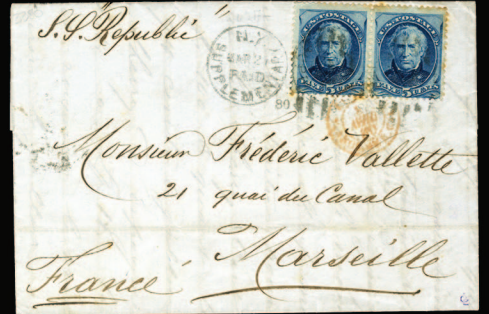 S.S. "Republic"
N.Y.
MAR 2
PAID
SUPPLEMENTARY
U.S. POSTAGE
U.S. POSTAGE
FIVE 5 CENTS
FIVE 5 CENTS
80
Monsieur Frédéric Vallette
21 quai du Canal
Marseille
France